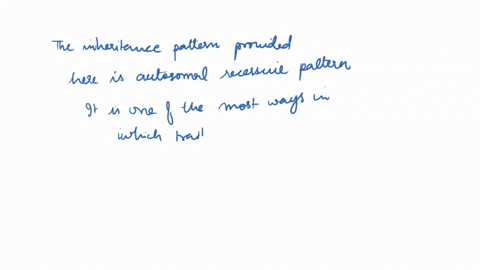 The inheritance pattern provided
here is autosomal recessive pattern
It is one of the most ways in
which trait